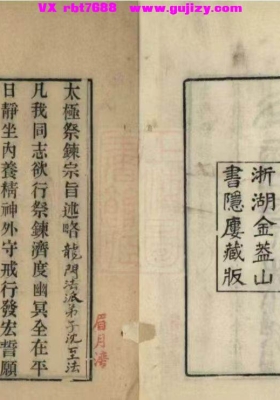 VX rbt7688 www.gujizy.com
浙湖金葢山
書隱廔藏版
太極祭鍊宗旨述略 龍門法派弟子沈
凡我同志欲行祭鍊濟度幽冥全在平
日靜坐內養精神外守戒行發宏誓願